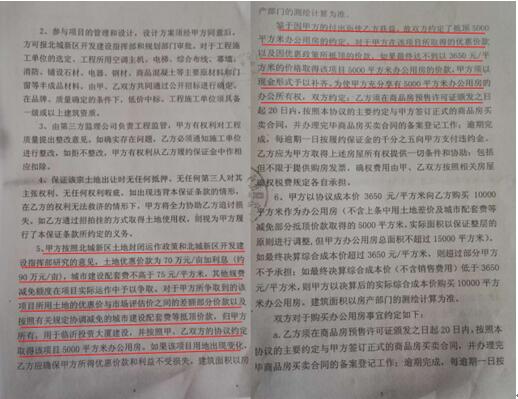 2、参与项目的管理和设计，设计方案须经甲方同意后，
方可报北城新区开发建设指挥部和规划部门审批。对于工程施
工单位的选定，工程所用空调主机、电梯、综合布线、幕墙、
消防、铺设石材、电器、钢材、商品混凝土等主要原材料和门
窗等半成品材料，由甲、乙双方共同通过公开招标进行确定，
在品牌、质量确定的条件下，低价中标。工程施工单位须具备
一级或以上建筑资质。
3、由第三方监理公司负责工程监管，甲方有权利对工程
质量提出整改意见，如确实存在问题，乙方必须通知施工单位
进行整改，如拒不整改，甲方有权利从乙方履约保证金中作相
应扣除。
4、保证该宗土地出让时无任何抵押、无任何第三人对其
主张权利、无任何权利瑕疵，如出现违背本保证条款的情形，
在乙方的权利无法救济的情形下，甲方将全力协助乙方追讨损
失。如乙方通过招拍挂的方式取得土地使用权，则视为甲方履行
了本保证条款所约定的义务。
5、甲方按照北城新区土地封闭运作政策和北城新区开发建
设指挥部研究的意见，土地优惠价款为 70 万元/亩加利息（约
90 万元/亩），城市建设配套费不高于 75 元/平方米，其他规费
减免额度在项目实际运作中予以争取。对于甲方所争取到的该
项目所用土地的优惠价与市场评估价之间的差额部分价款以及
按照有关规定协调减免的城市建设配套费等抵顶价款，归甲方
所有，用于临沂投资大厦建设，并按照甲、乙双方的协议约定
取得该项目 5000 平方米办公用房。如果该项目用地出现变化，
乙方应确保甲方所得优惠价款和利益不受损失，建筑面积以房
产部门的测绘计算为准。
等于因甲方的付出而使乙方获益，故双方约定了抵顶 5000
平方米办公用房的约定。对于甲方在该项目所取得的优惠价款
以及因优惠政策所抵顶的价款，如果最终达不到以 3650 元/平
方米的价格取得该项目 5000 平方米办公用房的价款，甲方须以
现金形式予以补齐。为使甲方充分享有 5000 平方米办公用房的
办公所有权，双方约定：乙方须在商品房预售许可证颁发之日
起 20 日内，按照本协议的主要约定与甲方签订正式的商品房买
卖合同，并办理完毕商品房买卖合同的备案登记工作；逾期完
成，每逾期一日按履约保证金的千分之五向甲方支付违约金。
乙方应为甲方取得上述房屋所有权提供一切条件和协助；包括
但不限于提供购房发票，确权费用由甲、乙双方按照相关房屋
确权税费规定各自承担。
6、甲方以协议成本价 3650 元/平方米向乙方购买 10000
平方米作为办公用房（不含上条中用土地差价及城市配套费等
减免部分抵顶价款取得的 5000 平方米，实际面积以保证整层的
原则进行调整，但甲方办公用房总面积不超过 15000 平方米）。
如果最终决算综合成本价超过 3650 元/平方米，则超过部分甲方
不予承担；如最终决算综合成本价（不含销售费用）低于 3650
元/平方米，则甲方以决算后的实际综合成本价购买 10000 平方
米办公用房。建筑面积以房产部门的测绘计算为准。
双方对于购买办公用房事宜约定如下：
a.乙方须在商品房预售许可证颁发之日起 20 日内，按照本
协议的主要约定与甲方签订正式的商品房买卖合同，并办理完
毕商品房买卖合同的备案登记工作；逾期完成，每逾期一日按